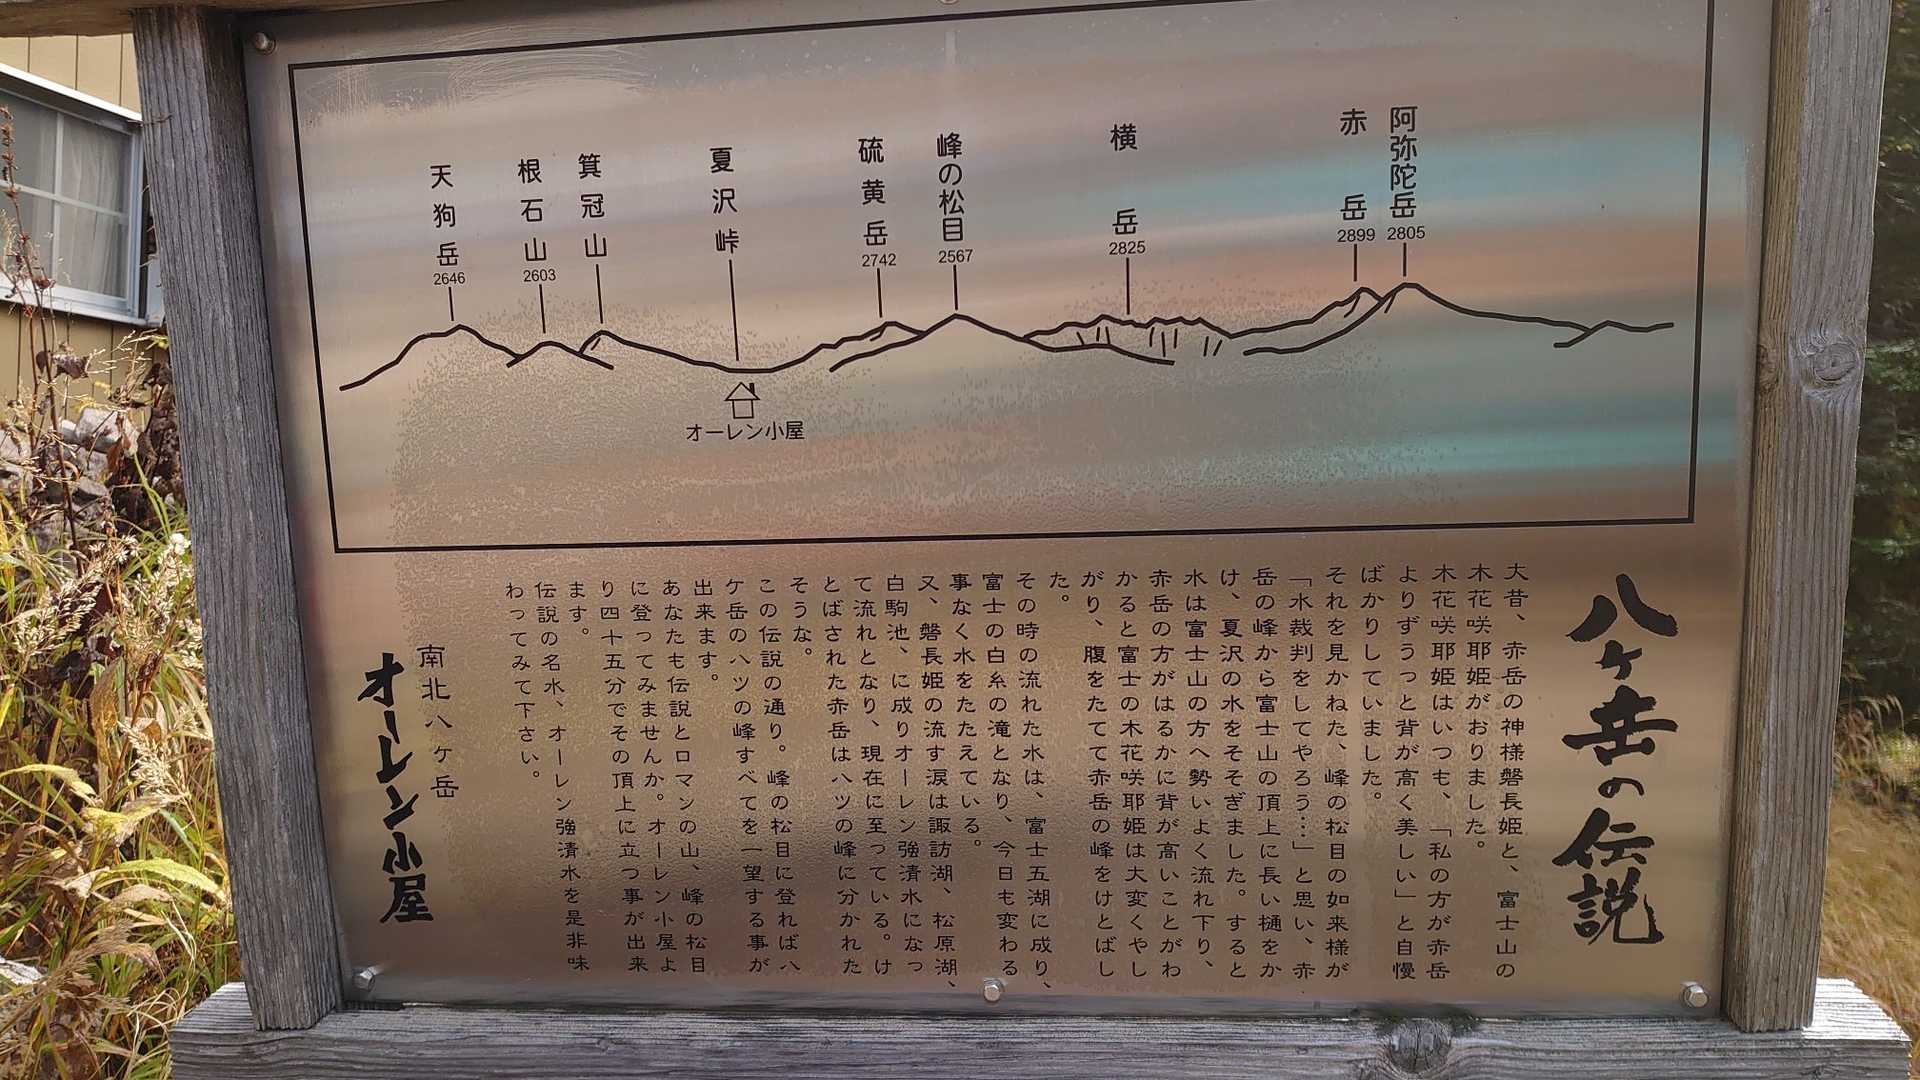 天狗岳
2646
根石山
2603
箕冠山
夏沢峠
硫黄岳
2742
峰の松目
2567
横岳
2825
赤岳
2899
阿弥陀岳
2805
オーレン小屋
八ヶ岳の伝説
大昔、赤岳の神様磐長姫と、富士山の
木花咲耶姫がおりました。
木花咲耶姫はいつも、「私の方が赤岳
よりずうっと背が高く美しい」と自慢
ばかりしていました。
それを見かねた、峰の松目の如来様が
「水裁判をしてやろう…」と思い、赤
岳の峰から富士山の頂上に長い樋をか
け、夏沢の水をそそぎました。すると
水は富士山の方へ勢いよく流れ下り、
赤岳の方がはるかに背が高いことがわ
かると富士の木花咲耶姫は大変くやし
がり、腹をたてて赤岳の峰をけとばし
た。
その時の流れた水は、富士五湖に成り、
富士の白糸の滝となり、今日も変わる
事なく水をたたえている。
又、磐長姫の流す涙は諏訪湖、松原湖、
白駒池、に成りオーレン強清水になっ
て流れとなり、現在に至っている。け
とばされた赤岳は八ツの峰に分かれた
そうな。
この伝説の通り。峰の松目に登れば八
ケ岳の八ツの峰すべてを一望する事が
出来ます。
あなたも伝説とロマンの山、峰の松目
に登ってみませんか。オーレン小屋よ
り四十五分でその頂上に立つ事が出来
ます。
伝説の名水、オーレン強清水を是非味
わってみて下さい。
南北八ヶ岳
オーレン小屋